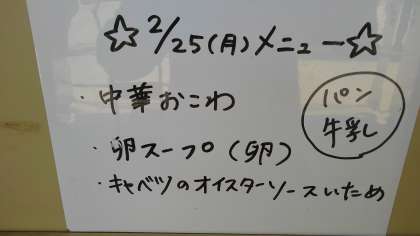 ☆2/25(月)メニュー☆
・中華おこわ
・卵スープ(卵)
・キャベツのオイスターソースいため
パン
牛乳